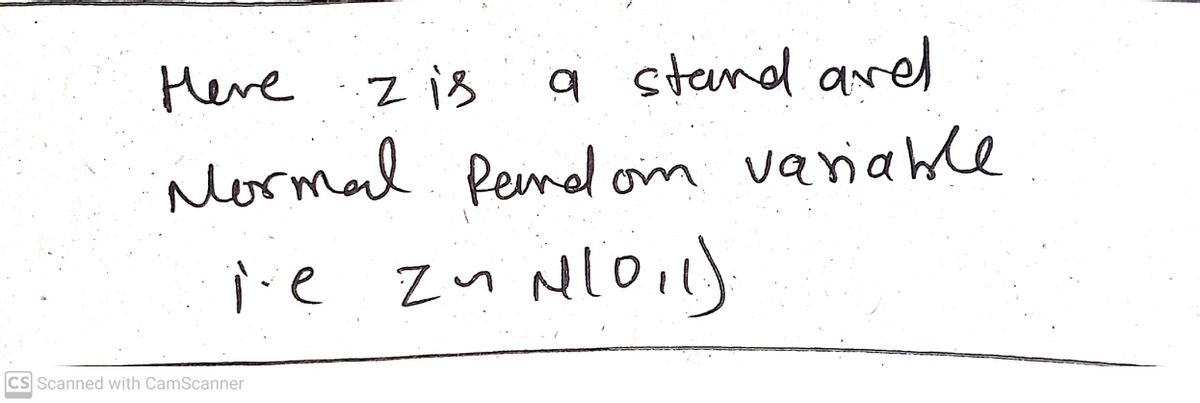 Here z is a standard
Normal Random variable
i.e Z ~ N(0,1)
CS Scanned with CamScanner